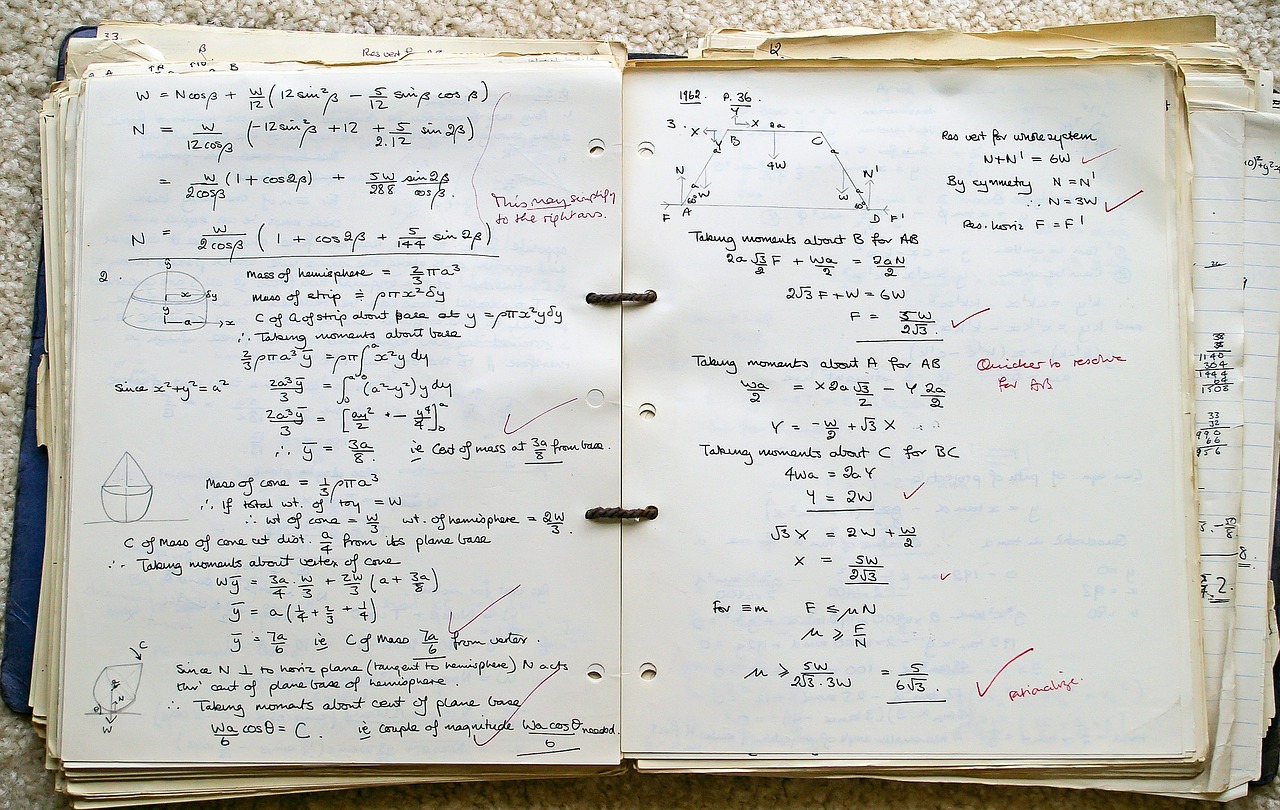 33.
β
Res vert
B
W = Ncosβ + W/12 (12sin²β − 5/12 sinβ cosβ)
N = W/12cosβ (−12sin²β + 12 + 5/2.12 sin2β)
= W/2cosβ (1 + cos2β) + 5W/288 sin2β/cosβ.
This may simplify
to the right ans.
N = W/2cosβ (1 + cos2β + 5/144 sin2β)
2.
y
x δy
y
a x
Mass of hemisphere = 2/3 πa³
Mass of strip ≑ ρπx²δy
C of G of strip about base at y = ρπx²yδy
∴ Taking moments about base
2/3 ρπa³ȳ = ρπ∫₀ᵃ x²y dy
Since x²+y²=a² 2a³ȳ/3 = ∫₀ᵃ (a²−y²)y dy
2a³ȳ/3 = [ay²/2 + − y⁴/4]₀ᵃ
∴ ȳ = 3a/8 ie Cent of mass at 3a/8 from base.
Mass of cone = 1/3 ρπa³
∴ If total wt. of toy = W
∴ wt of cone = W/3 wt. of hemisphere = 2W/3.
C of Mass of cone at dist. a/4 from its plane base
∴ Taking moments about vertex of cone
Wȳ = 3a/4 . W/3 + 2W/3 (a + 3a/8)
ȳ = a(1/4 + 2/3 + 1/4)
ȳ = 7a/6 ie C of Mass 7a/6 from vertex.
C
N
θ
W
Since N ⊥ to horiz plane (tangent to hemisphere) N acts
thro' cent of plane base of hemisphere.
∴ Taking moments about cent of plane base
Wa/6 cosθ = C. ie couple of magnitude Wa cosθ/6 needed.
12.
1962. P. 36.
3. X Y X 2a
B C
Y a 4W a
N a W W a N'
60° 60°
F A D F'
Res vert for whole system
N+N' = 6W
By symmetry N = N'
∴ N = 3W
Res. horiz F = F'
Taking moments about B for AB
2a √3/2 F + Wa/2 = 2aN/2
2√3 F + W = 6W
F = 5W/2√3.
Taking moments about A for AB
Quicker to resolve
for AB
Wa/2 = X2a √3/2 − Y 2a/2
Y = −W/2 + √3 X
Taking moments about C for BC
4Wa = 2aY
Y = 2W
√3 X = 2W + W/2
X = 5W/2√3
For ≡m F ≤ μN
μ ≥ F/N
μ ≥ 5W/2√3.3W = 5/6√3.
rationalize.
38
38
1140
304
1444
64
1508
33
32
990
66
956